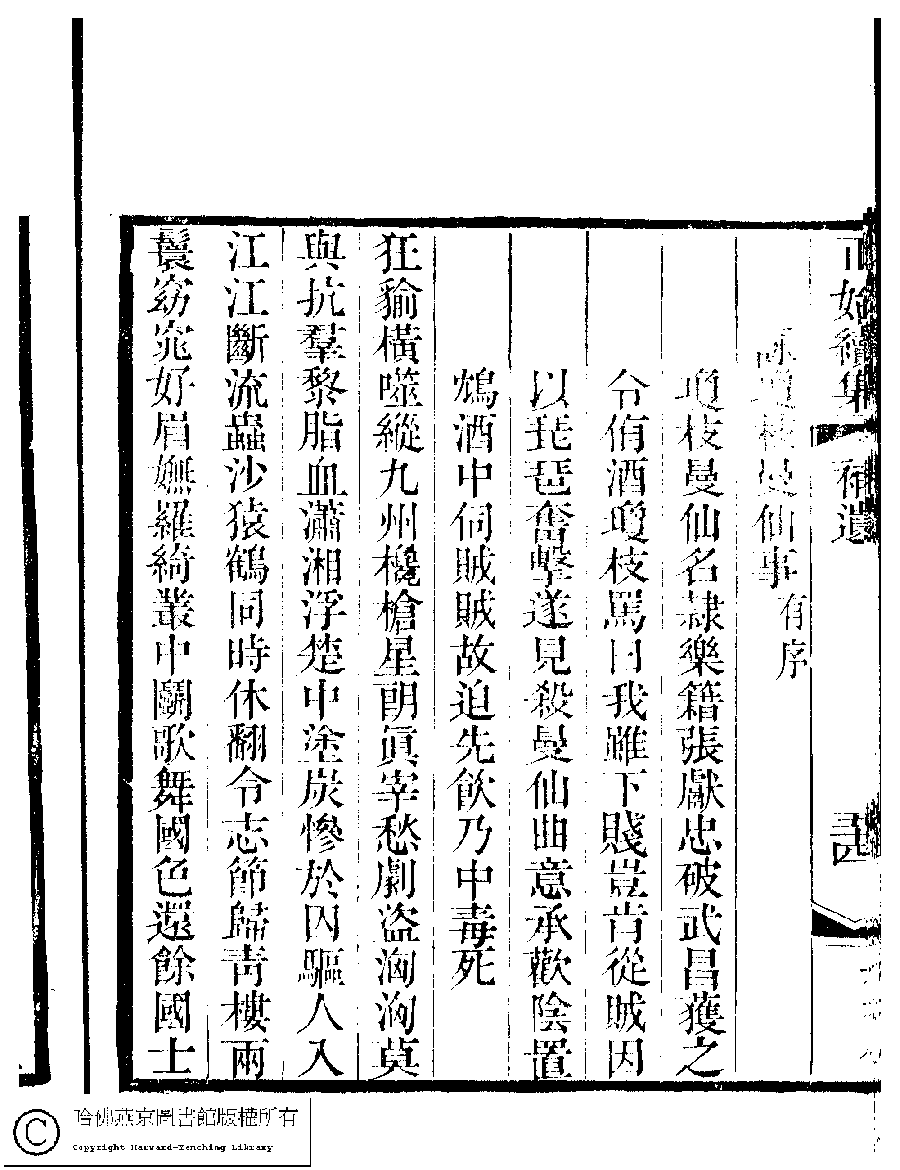 正始續集 補遺
詠瓊枝曼仙事有序
瓊枝曼仙名隸樂籍張獻忠破武昌獲之
令侑酒瓊枝罵曰我雖下賤豈肯從賊因
以琵琶奮擊遂見殺曼仙曲意承歡陰置
鴆酒中伺賊賊故迫先飲乃中毒死
狂貐橫噬縱九州欃槍星朗眞宰愁劇盜洶洶莫
與抗羣黎脂血瀟湘浮楚中塗炭慘於囚驅人入
江江斷流蟲沙猿鶴同時休翻令志節歸靑樓兩
鬟窈窕好眉嫵羅綺叢中鬭歌舞國色還餘國士
哈佛燕京圖書館版權所有
Copyright Harvard-Yenching Library